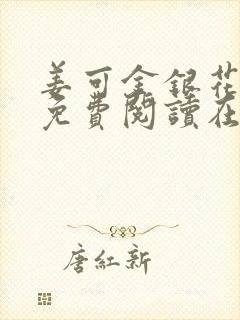 姜可金銀花
免費閱讀在
唐紅新